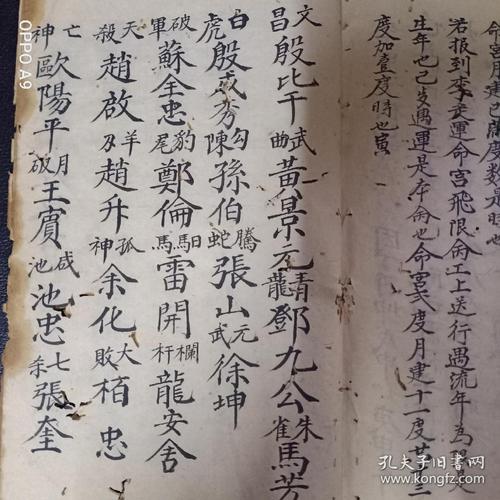 度数九時也
若报到李 運命宮飛限 工上送行遇流年为
生年也已岁遇運是夲 也命宮弍度月建十一度廿三
度加壹度時也寅
文昌殷比干武曲黃景元青龍鄧九公朱雀馬芳
白虎殷成秀勾陳孫伯騰蛇張山元武徐坤
破軍蘇全忠豹尾鄭倫馹馬雷開欄杆龍安舍
天殺趙啟羊刃趙升孤神余化大敗柏忠
亡神歐陽平月破王賓咸池池忠七杀張奎
OPPO A9
孔夫子旧书网
kongfz.com